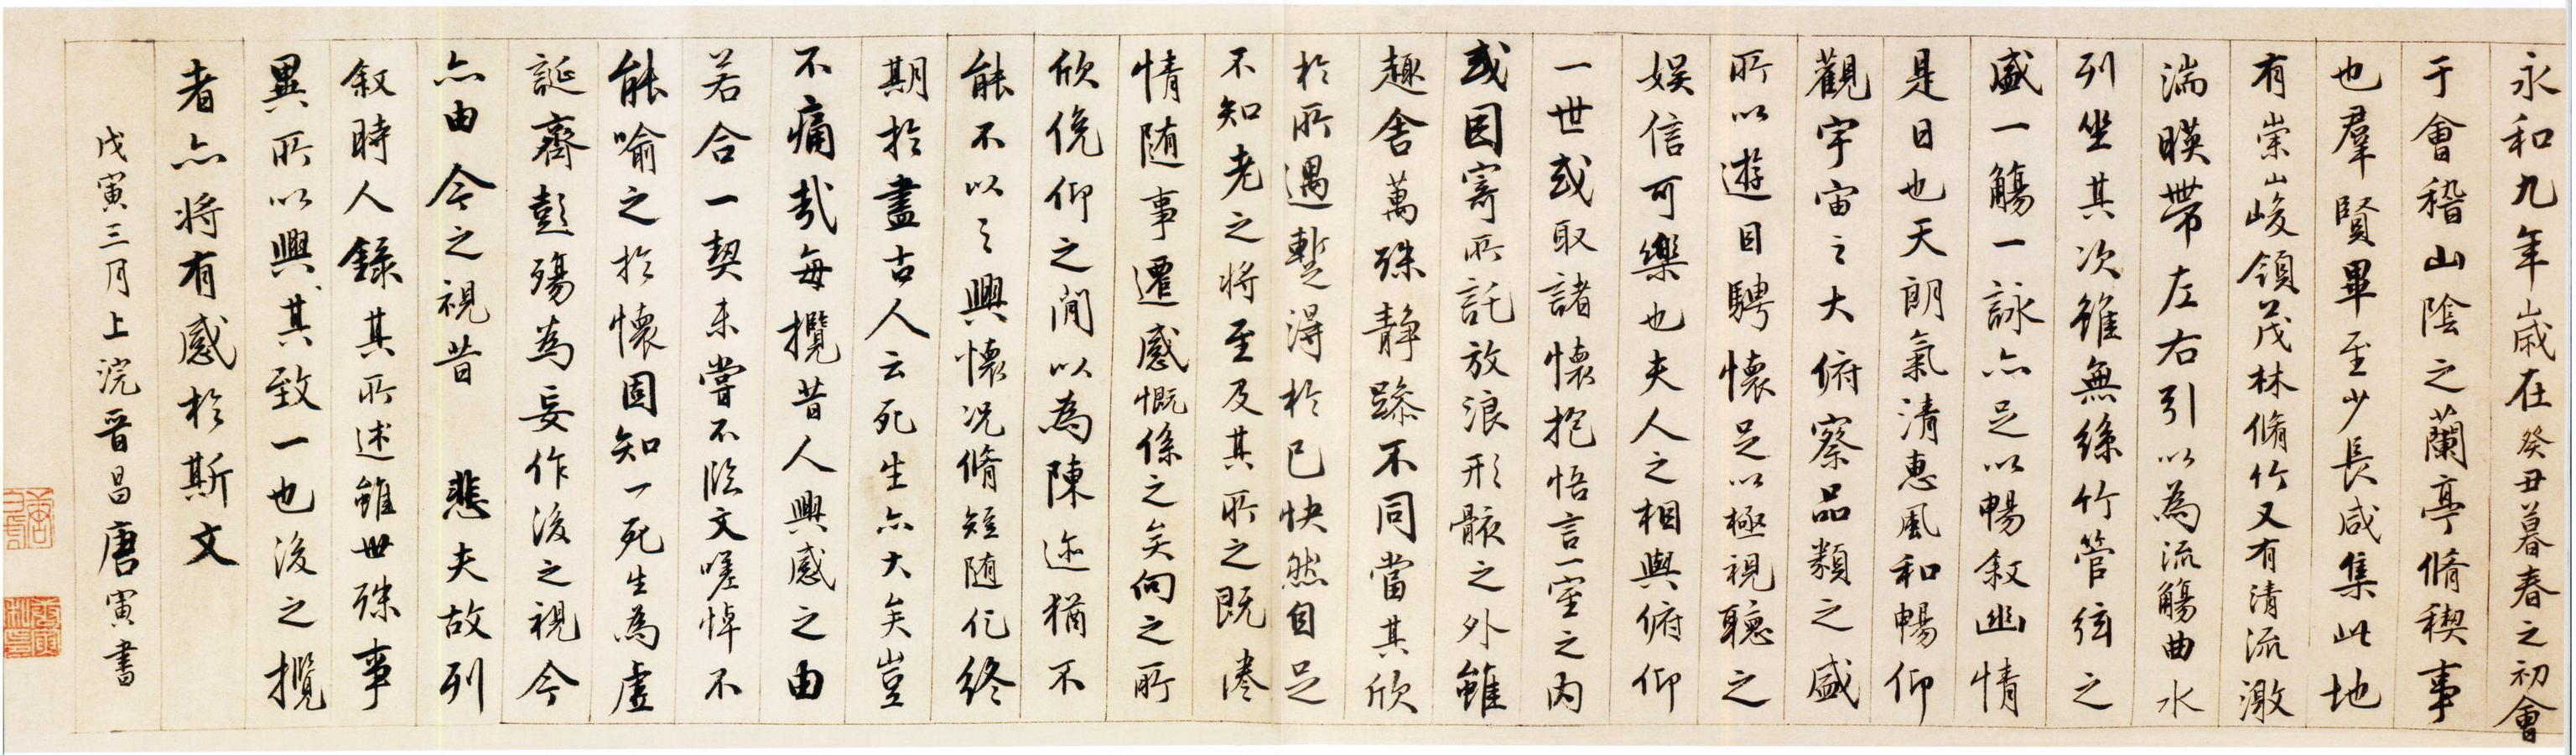 永和九年歲在癸丑暮春之初會
于會稽山陰之蘭亭脩稧事
也羣賢畢至少長咸集此地
有崇山峻領茂林脩竹又有清流激
湍暎帶左右引以為流觴曲水
列坐其次雖無絲竹管弦之
盛一觴一詠亦足以暢敘幽情
是日也天朗氣清惠風和暢仰
觀宇宙之大俯察品類之盛
所以遊目騁懷足以極視聽之
娛信可樂也夫人之相與俯仰
一世或取諸懷抱悟言一室之內
或因寄所託放浪形骸之外雖
趣舍萬殊靜躁不同當其欣
於所遇蹔得於己快然自足
不知老之將至及其所之既惓
情隨事遷感慨係之矣向之所
欣俛仰之閒以為陳迹猶不
能不以之興懷况脩短隨化終
期於盡古人云死生亦大矣豈
不痛哉每攬昔人興感之由
若合一契未嘗不臨文嗟悼不
能喻之於懷固知一死生為虛
誕齊彭殤為妄作後之視今
亦由今之視昔 悲夫故列
敘時人錄其所述雖世殊事
異所以興其致一也後之攬
者亦將有感於斯文
戊寅三月上浣晋昌唐寅書